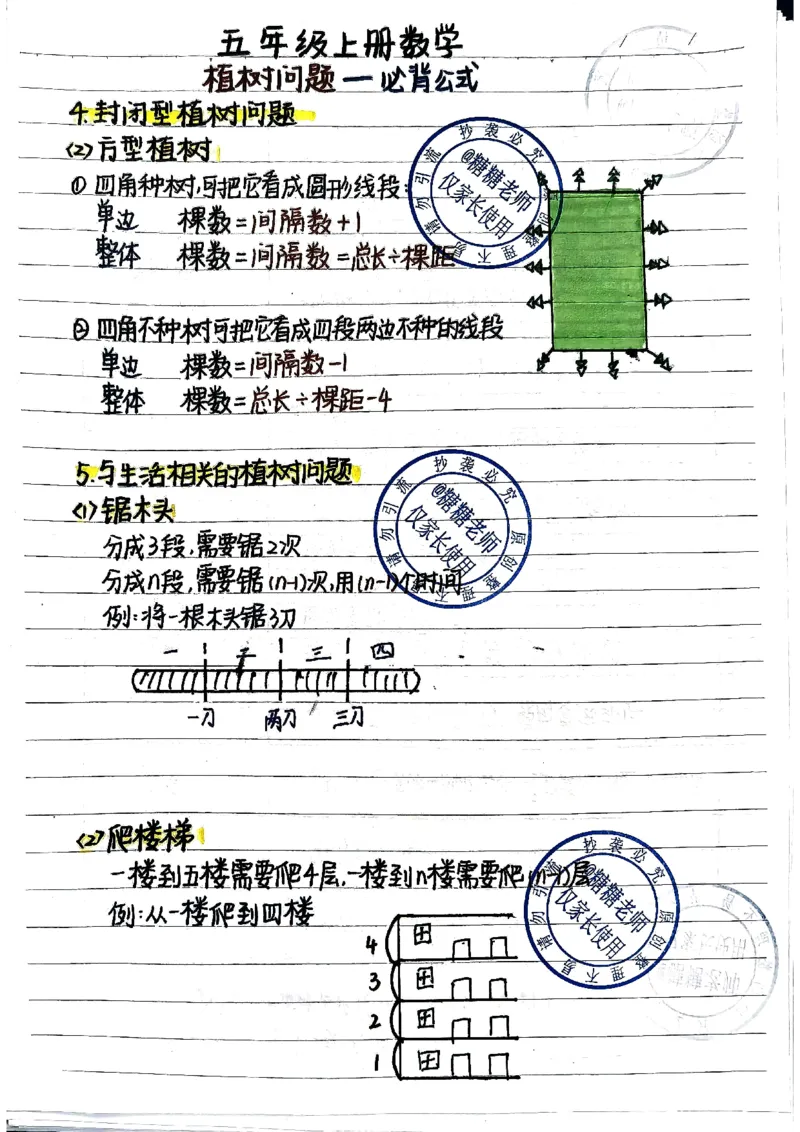 五年级上册数学
植树问题一必背公式
4.封闭型植树问题
(2)方型植树
① 四角种树,可把它看成圆形线段:
单边 棵数=间隔数+1
整体 棵数=间隔数=总长÷棵距
② 四角不种树可把它看成四段两边不种的线段
单边 棵数=间隔数-1
整体 棵数=总长÷棵距-4
5.与生活相关的植树问题
(1)锯木头
分成3段,需要锯2次
分成n段,需要锯(n-1)次,用(n-1)个时间
例:将一根木头锯3刀
一 二 三 四
一刀 两刀 三刀
(2)爬楼梯
一楼到五楼需要爬4层,一楼到n楼需要爬(n-1)层
例:从一楼爬到四楼
4
3
2
1
请勿引流 抄袭必究 原创整理不易
@糖糖老师
仅家长使用
请勿引流 抄袭必究 原创整理不易
@糖糖老师
仅家长使用
请勿引流 抄袭必究 原创整理不易
@糖糖老师
仅家长使用